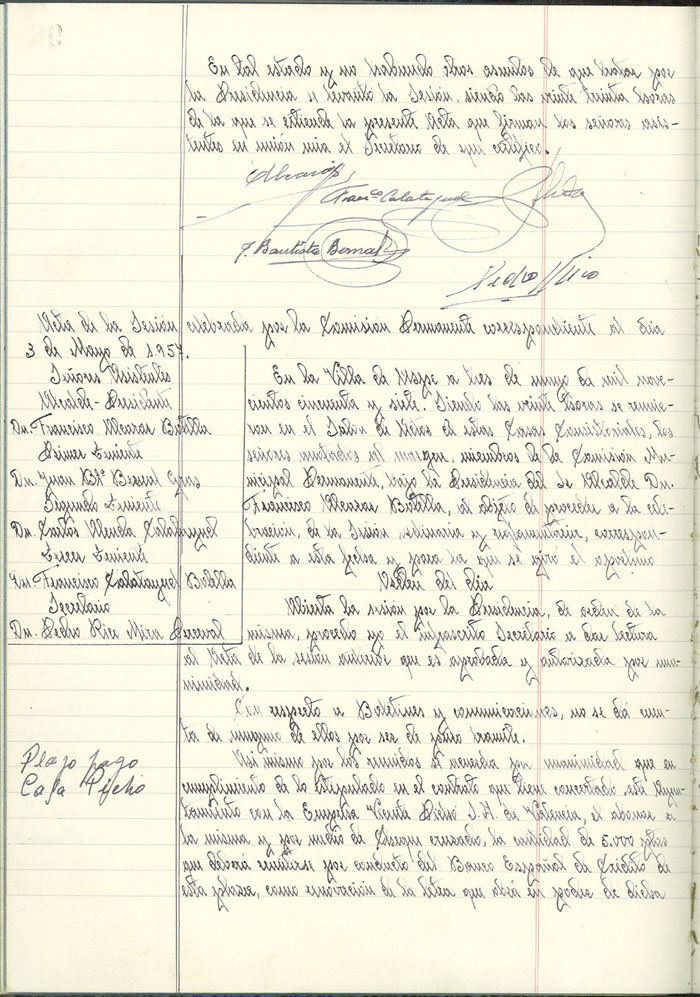 En tal estado y no habiendo otros asuntos de que tratar por
la Presidencia se levantó la Sesión, siendo las veinte treinta horas
de la que se extiende la presente Acta que firman los señores asis-
tentes en unión mía el Secretario de que certifico.
Franco Calatayud
J. Bautista Bernal
Pedro Rico
Acta de la Sesión celebrada por la Comisión Permanente correspondiente al día
3 de Mayo de 1.957.
Señores Asistentes
Alcalde-Presidente
Dn. Francisco Alcaraz Botella
Primer Teniente
Dn. Juan Bta Bernal
Segundo Teniente
Dn. Carlos Calatayud
Tercer Teniente
Dn. Francisco Calatayud Botella
Secretario
Dn. Pedro Rico Mira Perceval
En la Villa de Aspe a tres de mayo de mil nove-
cientos cincuenta y siete. Siendo las veinte horas se reunie-
ron en el Salón de Actos de estas Casas Consistoriales, los
señores anotados al margen, miembros de la Comisión Mu-
nicipal Permanente, bajo la Presidencia del Sr Alcalde Dn.
Francisco Alcaraz Botella, al objeto de proceder a la cele-
bración, de la sesión ordinaria y correspon-
diente a esta fecha y para la que se giró el oportuno
Orden del día
Abierta la sesión por la Presidencia, de orden de la
misma, procedo yo el infrascrito Secretario a dar lectura
al Acta de la sesión anterior que es aprobada y autorizada por una-
nimidad.
Con respecto a Boletines y comunicaciones, no se dá cuen-
ta de ninguno de ellos por ser de puro tramite.
Plazo pago
Casa
Asi mismo por los reunidos se acuerda por unanimidad que en
cumplimiento de lo estipulado en el contrato que tiene concertado este Ayun-
tamiento con la Empresa Vicente S.A. de Valencia, el abonar a
la misma y por medio de cheque cruzado, la cantidad de 5.000 ptas
que deberá remitirse por conducto del Banco Español de Crédito de
esta plaza, como renovación de la letra que obra en poder de dicha